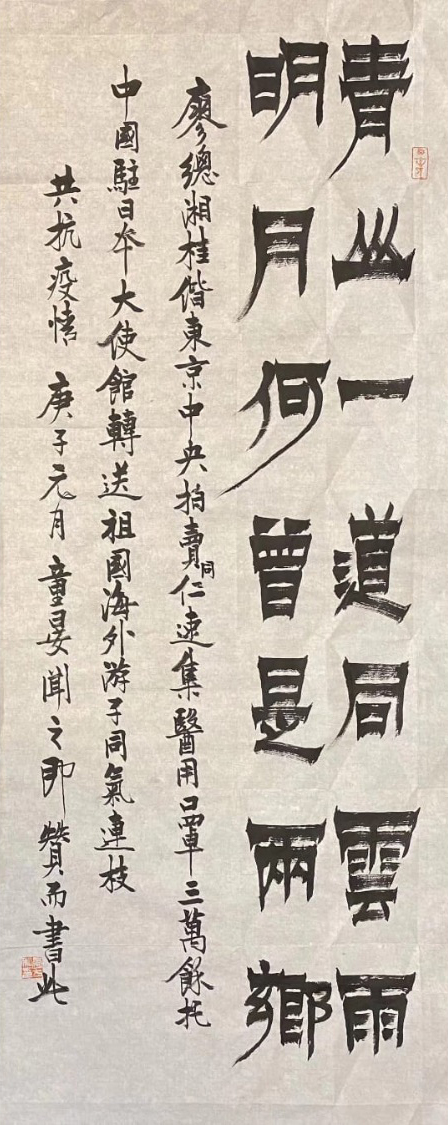 青山一道同雲雨
明月何曾是兩鄉
廖總湘桂偕東京中央拍賣同仁速集醫用口罩三萬餘托
中國駐日本大使館轉送祖國海外游子同氣連枝
共抗疫情 庚子元月童晏聞之即贊而書此